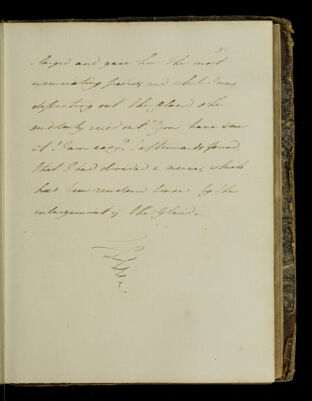 larged and gave her the most
excruciating pains; and while I was
dissecting out the gland she
suddenly cried out "You have
it! I am easy." I afterwards found
that I had divided a nerve, which
had been rendered tense by the
enlargement of the Gland.